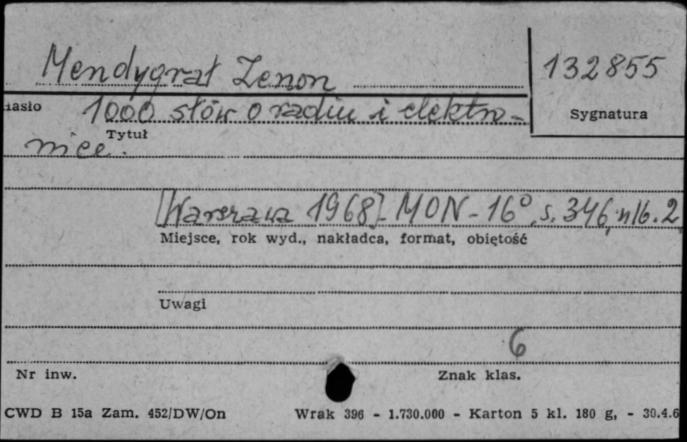 Mendygrał Zenon
132855
Sygnatura
1000 słów o radiu i elektro-
Tytuł
nice.
[Warszawa 1968]. MON - 16°, s. 346, nlb. 2
Miejsce, rok wyd., nakładca, format, objętość
Uwagi
6
Nr inw.
Znak klas.
CWD B 15a Zam. 452/DW/On
Wrak 396 - 1.730.000 - Karton 5 kl. 180 g, - 30.4.6